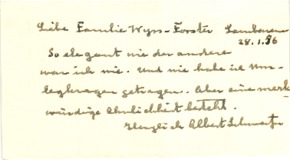 Liebe Familie Wyss-Forster Lambarene
28.1.56
So elegant wie der andere
war ich nie. Und nie habe ich Um-
legkragen getragen. Aber eine merk
würdige Ähnlichkeit besteht.
Herzlich Albert Schweitzer